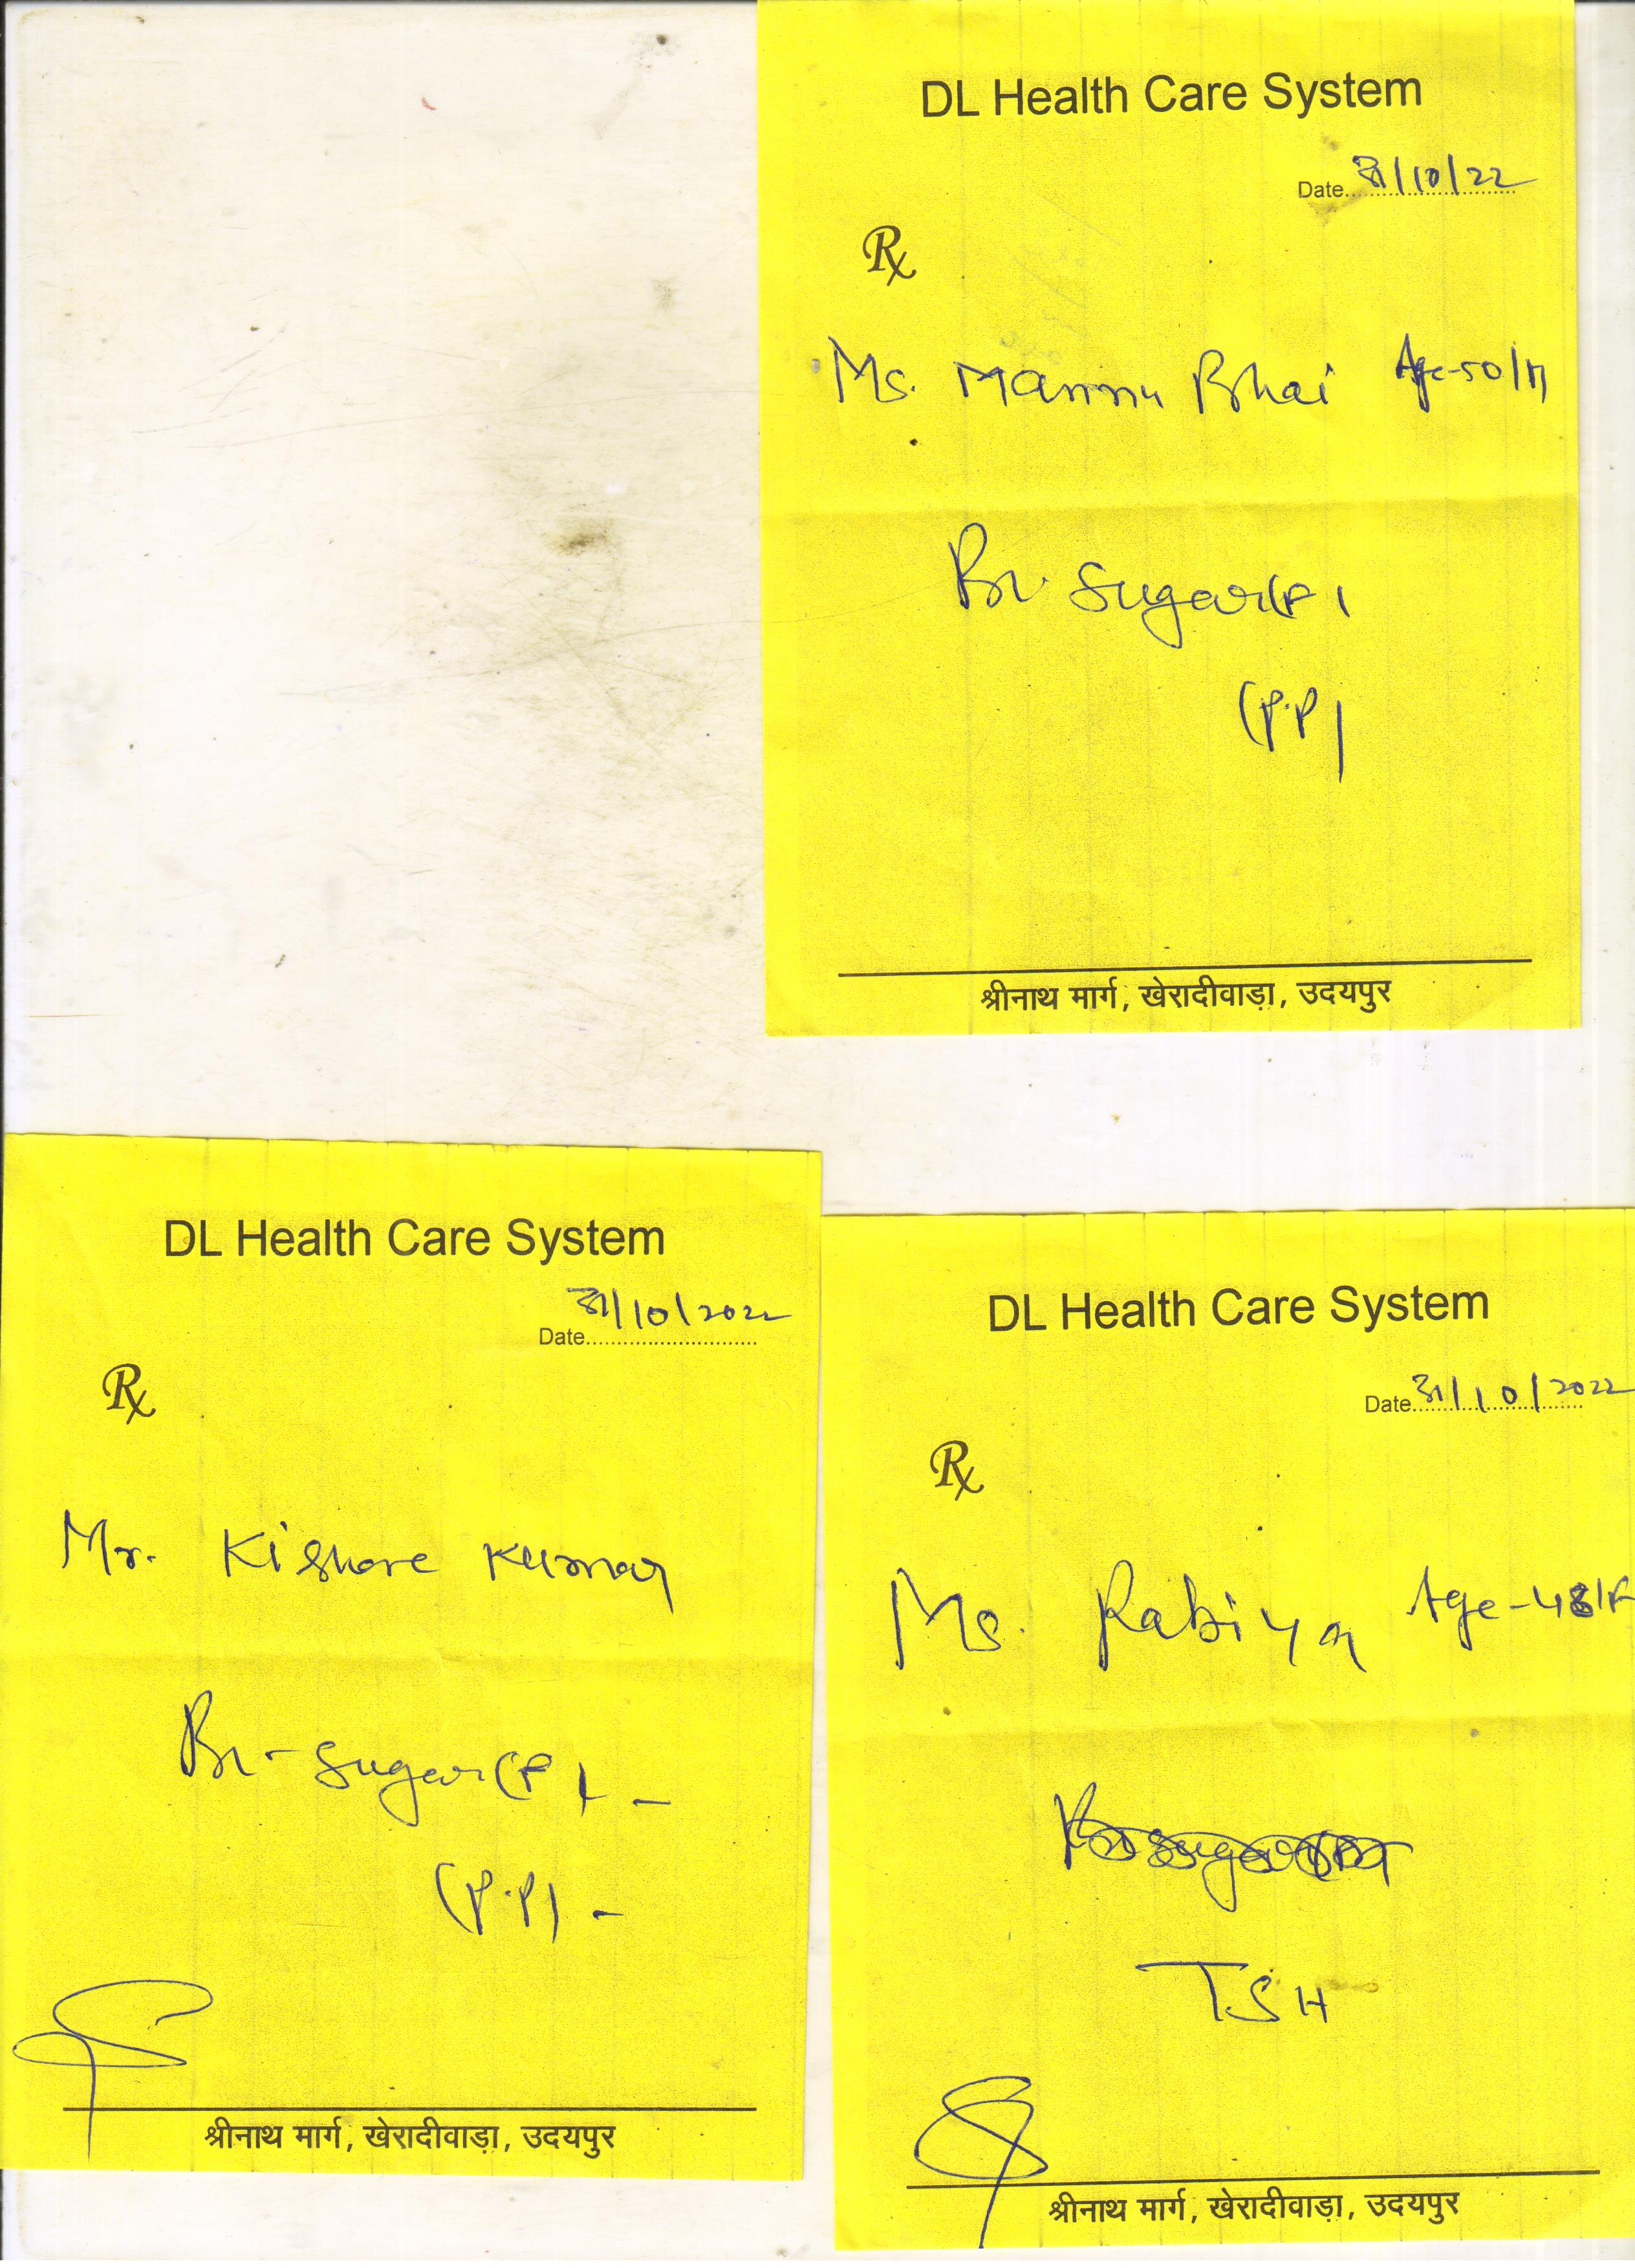 DL Health Care System
Date 31/10/22
Rx
Ms. Mannu Bhai Age-50/M
Br. Sugar (F)
(P.P)
श्रीनाथ मार्ग, खेरादीवाड़ा, उदयपुर
DL Health Care System
Date 31/10/2022
Rx
Mr. Kishore Kumar
Br - Sugar (F) -
(P.P) -
श्रीनाथ मार्ग, खेरादीवाड़ा, उदयपुर
DL Health Care System
Date 31/10/2022
Rx
Ms. Rabiya Age-48/F
TSH
श्रीनाथ मार्ग, खेरादीवाड़ा, उदयपुर